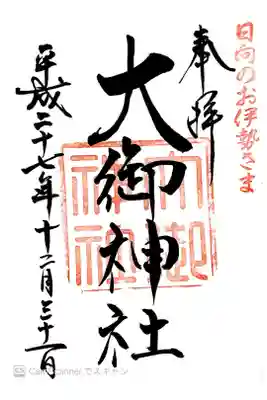 日向のお伊勢さま
奉拝
大御神社
大御神社
平成二十七年十二月三十一日
CamScanner でスキャン